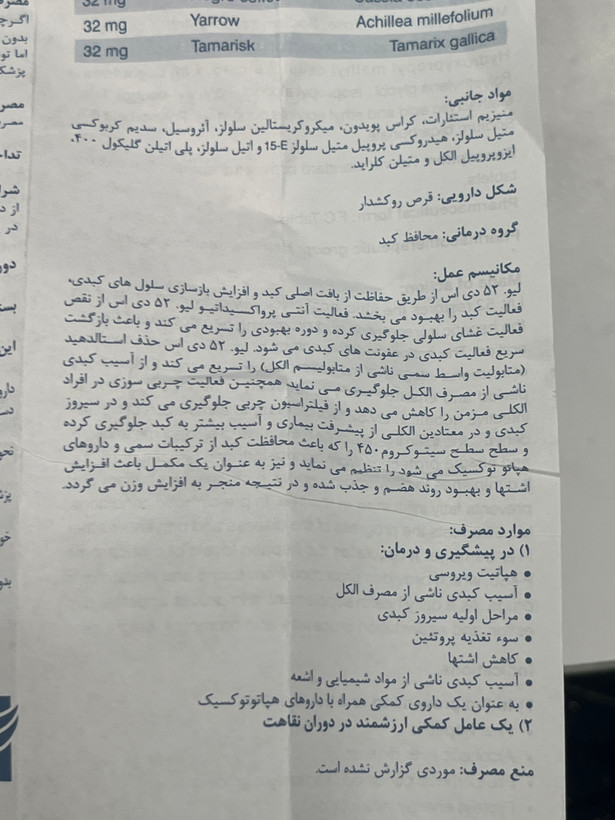 32 mg
32 mg Yarrow Achillea millefolium
32 mg Tamarisk Tamarix gallica
مواد جانبی:
منیزیم استئارات، کراس پویدون، میکروکریستالین سلولز، آئروسیل، سدیم کربوکسی
متیل سلولز، هیدروکسی پروپیل متیل سلولز 15-E و اتیل سلولز، پلی اتیلن گلیکول ۴۰۰،
ایزوپروپیل الکل و متیلن کلراید.
شکل دارویی: قرص روکشدار
گروه درمانی: محافظ کبد
مکانیسم عمل:
لیو. ۵۲ دی اس از طریق حفاظت از بافت اصلی کبد و افزایش بازسازی سلول های کبدی،
فعالیت کبد را بهبود می بخشد. فعالیت آنتی پرواکسیداتیو لیو. ۵۲ دی اس از نقص
فعالیت غشای سلولی جلوگیری کرده و دوره بهبودی را تسریع می کند و باعث بازگشت
سریع فعالیت کبدی در عفونت های کبدی می شود. لیو. ۵۲ دی اس حذف استالدهید
(متابولیت واسط سمی ناشی از متابولیسم الکل) را تسریع می کند و از آسیب کبدی
ناشی از مصرف الکل جلوگیری می نماید. همچنین فعالیت چربی سوزی در افراد
الکلی مزمن را کاهش می دهد و از فیلتراسیون چربی جلوگیری می کند و در سیروز
کبدی و در معتادین الکلی از پیشرفت بیماری و آسیب بیشتر به کبد جلوگیری کرده
و سطح سطح سیتوکروم ۴۵۰ را که باعث محافظت کبد از ترکیبات سمی و داروهای
هپاتو توکسیک می شود را تنظیم می نماید و نیز به عنوان یک مکمل باعث افزایش
اشتها و بهبود روند هضم و جذب شده و در نتیجه منجر به افزایش وزن می گردد.
موارد مصرف:
۱) در پیشگیری و درمان:
• هپاتیت ویروسی
• آسیب کبدی ناشی از مصرف الکل
• مراحل اولیه سیروز کبدی
• سوء تغذیه پروتئین
• کاهش اشتها
• آسیب کبدی ناشی از مواد شیمیایی و اشعه
• به عنوان یک داروی کمکی همراه با داروهای هپاتوتوکسیک
۲) یک عامل کمکی ارزشمند در دوران نقاهت
منع مصرف: موردی گزارش نشده است.